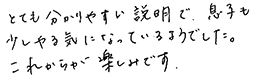 とても分かりやすい説明で、息子も
少しやる気になっているようでした。
これからが楽しみです。